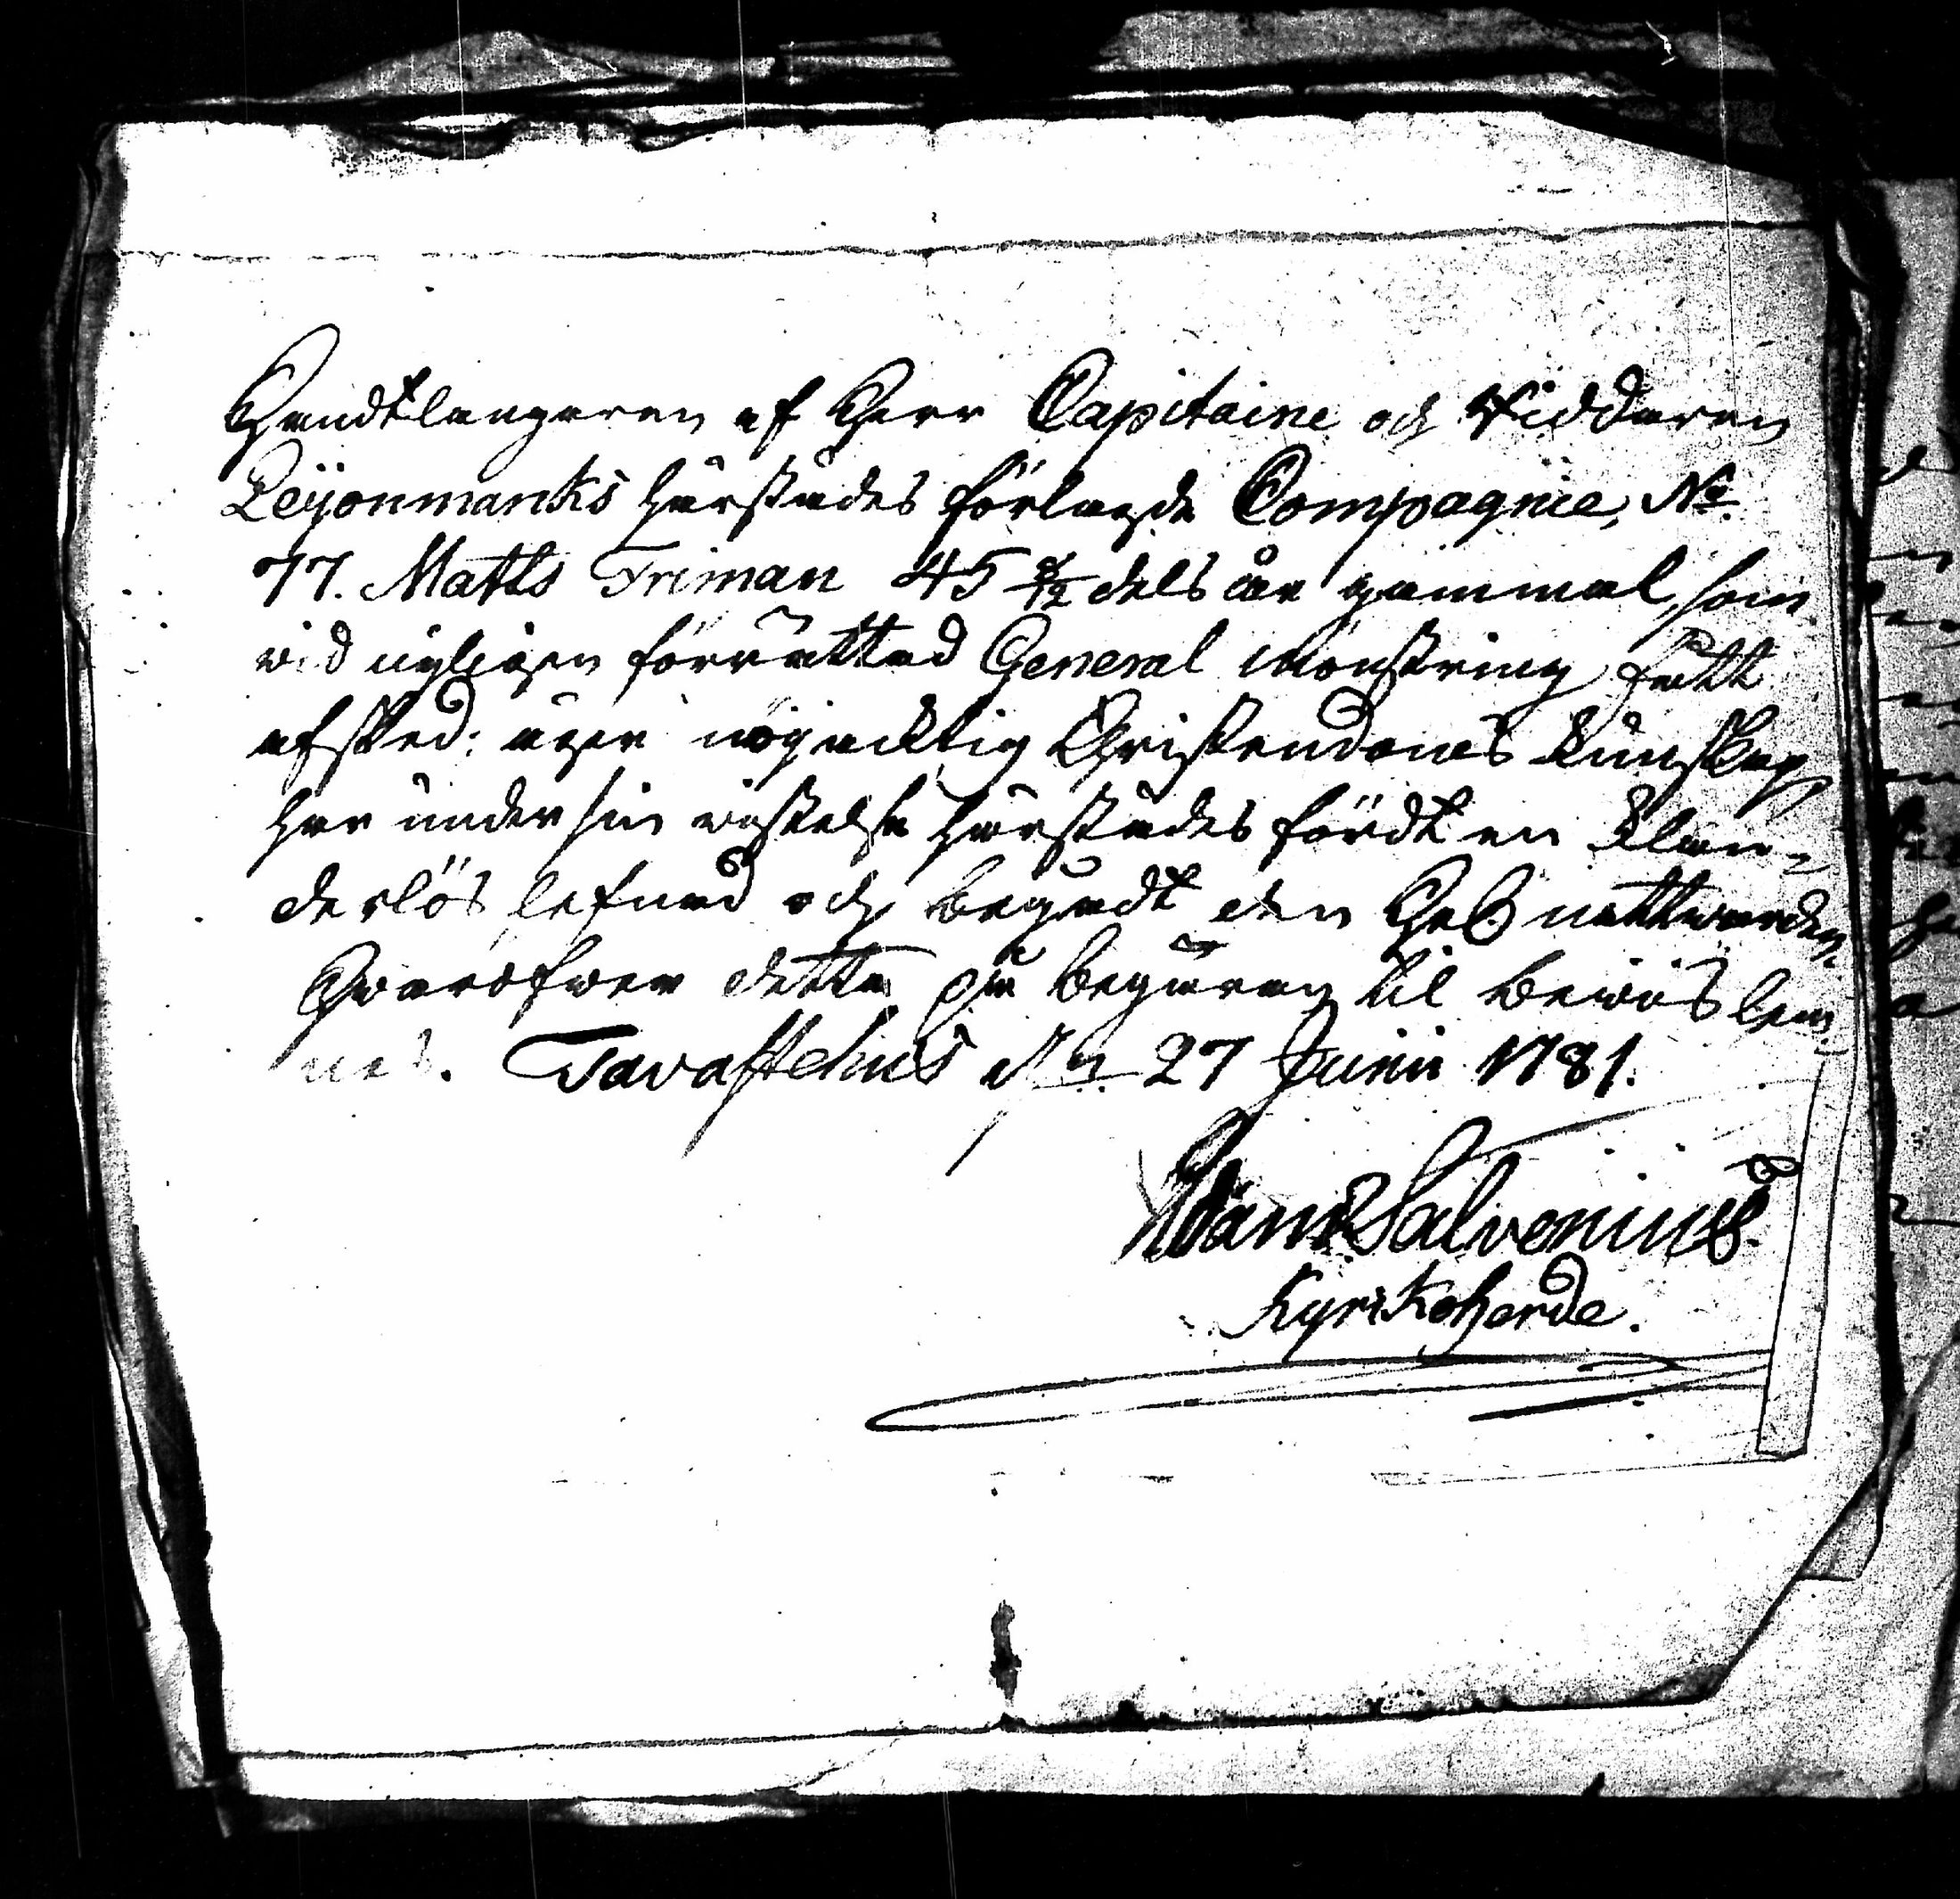 Handtlangaren af Herr Capitaine och Riddaren
Leijonmarks härstädes förlagde Compagnie, No
77. Matts Triman 45 8/12 dels åhr gammal, som
vid nyligen förrättad General Mönstring fått
afsked: äger nöjacktig Christendoms kunskap
har under sin vistelse härstädes fördt en klan-
derlös lefnad och begådt den Hel. nattwarden
Hwaröfwer detta på begäran til bewis lem-
nas. Tavastehus d. 27 Junii 1781.
Adam Salvenius
Kyrkoherde.